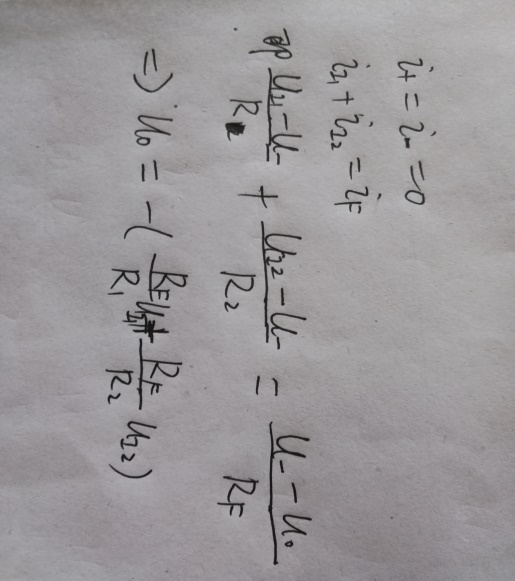 i₊ = i₋ = 0
i_{I1} + i_{I2} = i_F
即 \frac{U_{I1} - U_-}{R_1} + \frac{U_{I2} - U_-}{R_2} = \frac{U_- - U_o}{R_F}
=> U_o = -( \frac{R_F}{R_1} U_{I1} + \frac{R_F}{R_2} U_{I2} )